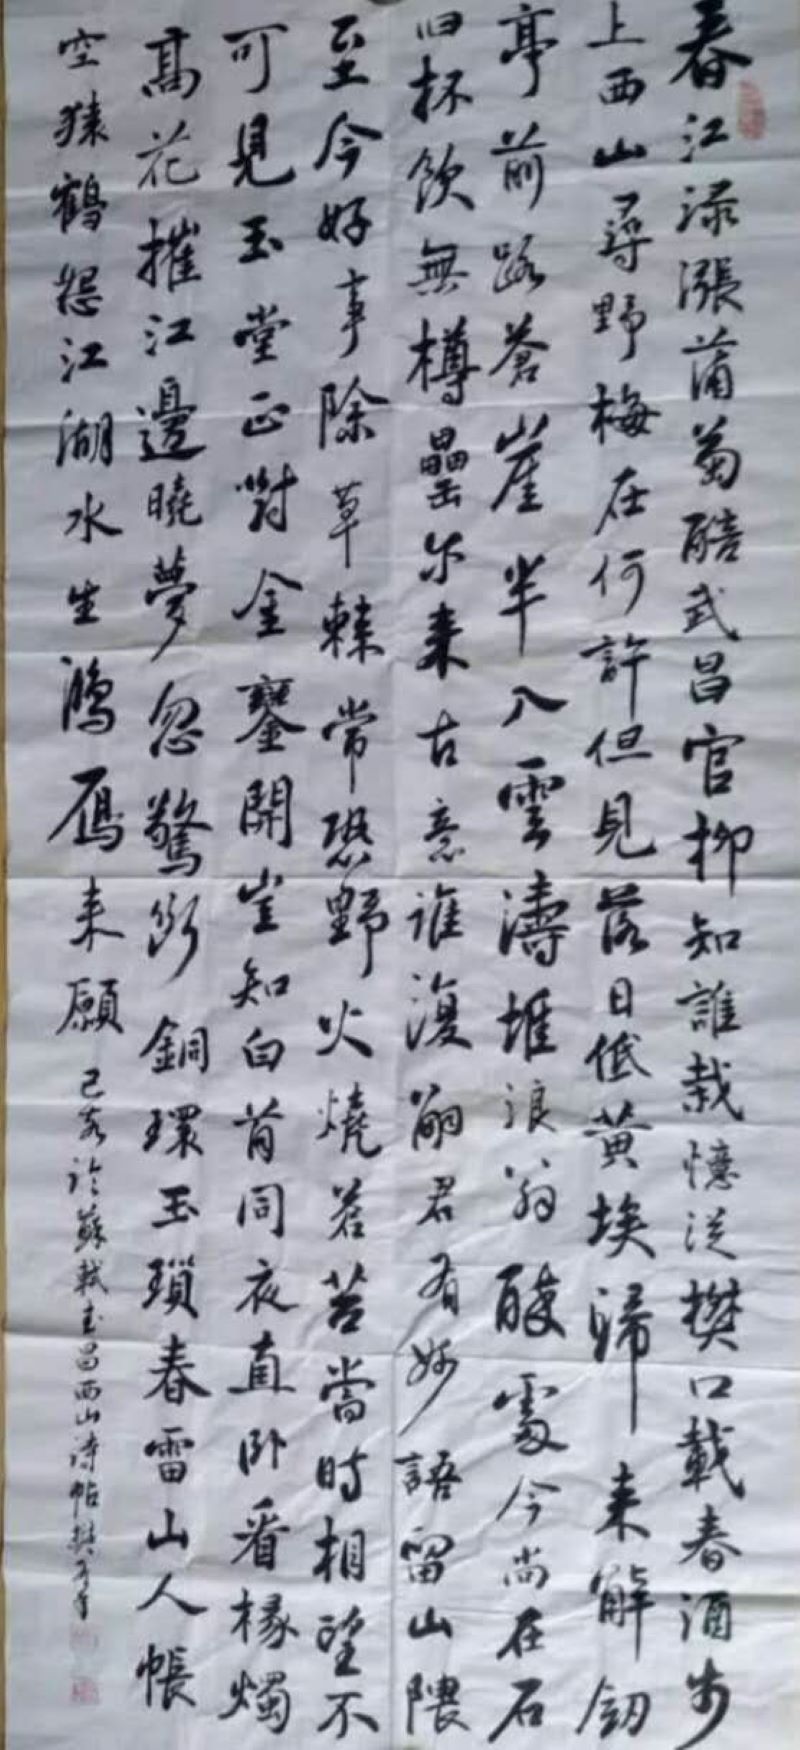 春江渌漲蒲萄醅武昌官柳知誰栽憶従樊口載春酒步
上西山尋野梅在何許但見落日低黄埃歸来解劒
亭前路蒼崖半入雲濤堆浪翁醉處今尚在石
臼杯飲無樽罍尓来古意誰復嗣君有妙語留山隈
至今好事除草棘常恐野火燒蒼苔當時相望不
可見玉堂正對金鑾開豈知白首同夜直卧看椽燭
高花摧江邊曉夢忽驚断銅環玉瑣春雷山人帳
空猿鶴怨江湖水生鴻雁来願
己亥 蘇軾武昌西山詩帖